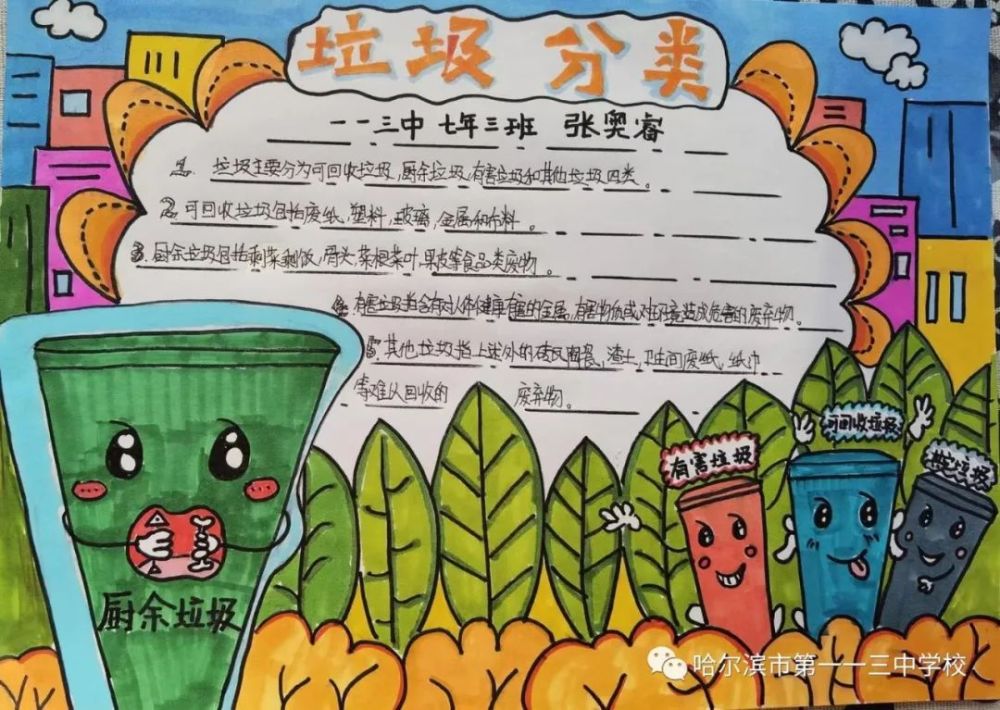 垃圾分类
一一三中 七年三班 张奕睿
1. 垃圾主要分为可回收垃圾,厨余垃圾,有害垃圾和其他垃圾四类。
2. 可回收垃圾包括废纸、塑料,玻璃,金属和布料。
3. 厨余垃圾包括剩菜剩饭,骨头,菜根菜叶,果皮等食品类废物。
4. 有害垃圾指含有对人体健康有害的金属,有害物质或对环境造成危害的废弃物。
其他垃圾指上述外的砖瓦陶瓷,渣土,卫生间废纸,纸巾
等难以回收的 废弃物。
有害垃圾
可回收垃圾
厨余垃圾
哈尔滨市第一一三中学校